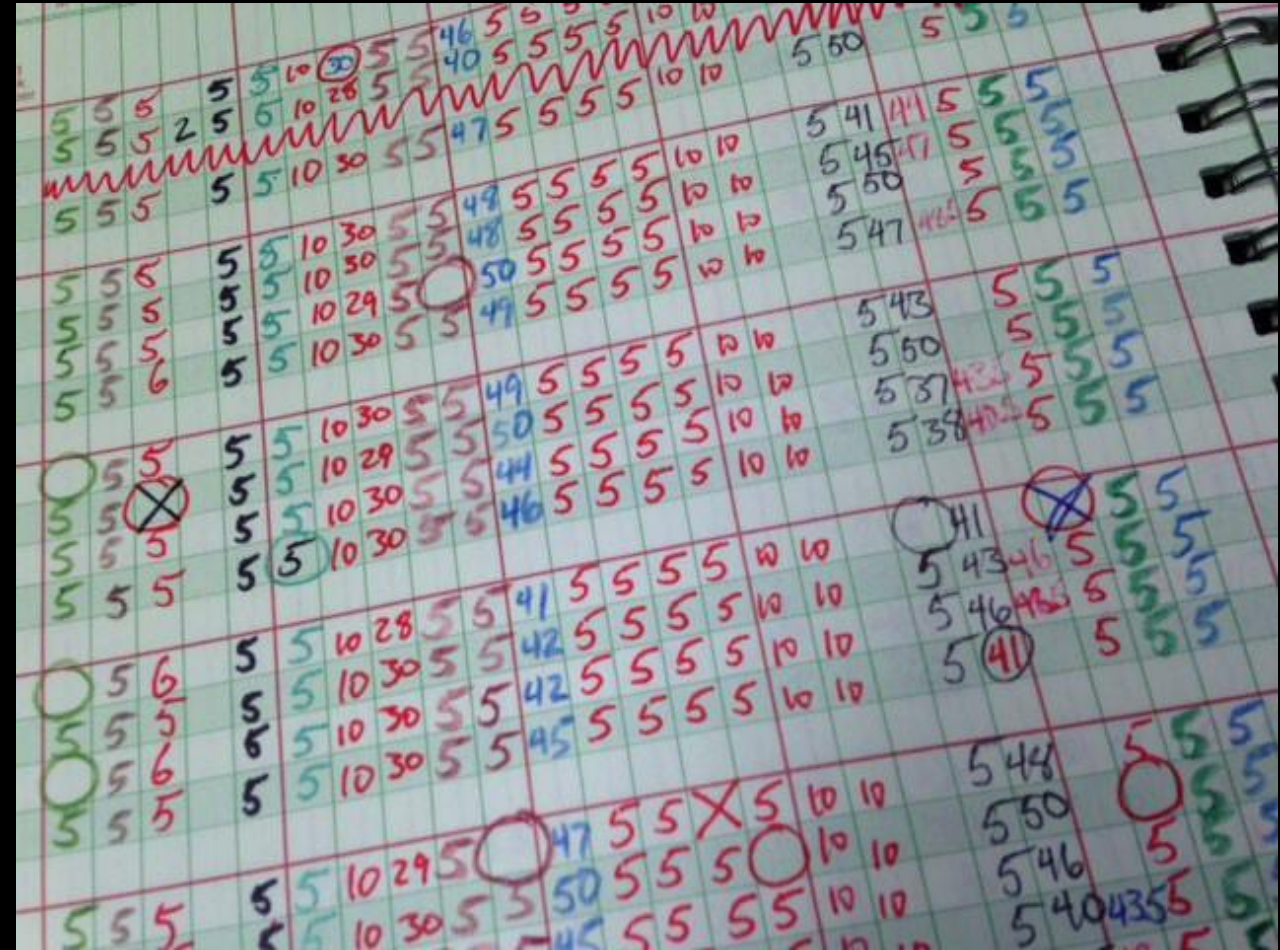 46 5 5 5 5 10 10
5 5 5 5 5 10 30 5 5 40 5 5 5 5 10 10 5 5 5
5 5 5 2 5 5 10 28 5 5 5 50
5 5 5 5 5 10 30 5 5 47 5 5 5 5 10 10
5 5 5 5 5 10 30 5 5 48 5 5 5 5 10 10 5 41 5 5 5
5 5 5 5 5 10 30 5 5 48 5 5 5 5 10 10 5 45 5 5 5
5 5 5 5 5 10 29 5 50 5 5 5 5 10 10 5 50 5 5 5
5 5 6 5 5 10 30 5 5 49 5 5 5 5 10 10 5 47 5 5 5
5 5 5 5 10 30 5 5 49 5 5 5 5 10 10 5 43 5 5 5
5 5 5 5 10 29 5 5 50 5 5 5 5 10 10 5 50 5 5 5
5 5 5 5 5 10 30 5 5 44 5 5 5 5 10 10 5 37 5 5 5
5 5 5 5 5 10 30 5 5 46 5 5 5 5 10 10 5 38 5 5 5
5 6 5 5 10 28 5 5 41 5 5 5 5 10 10 41 5 5
5 5 5 5 5 10 30 5 5 42 5 5 5 5 10 10 5 43 46 5 5 5
5 6 5 5 10 30 5 5 42 5 5 5 5 10 10 5 46 5 5 5
5 5 5 5 5 10 30 5 5 45 5 5 5 5 10 10 5 41 5 5 5
5 5 5 5 5 10 29 5 47 5 5 X 5 10 10 5 48 5 5 5
5 10 30 5 5 50 5 5 5 10 10 5 50 5 5
45 5 5 5 5 10 10 5 46 5 5
5 40 435 5 5